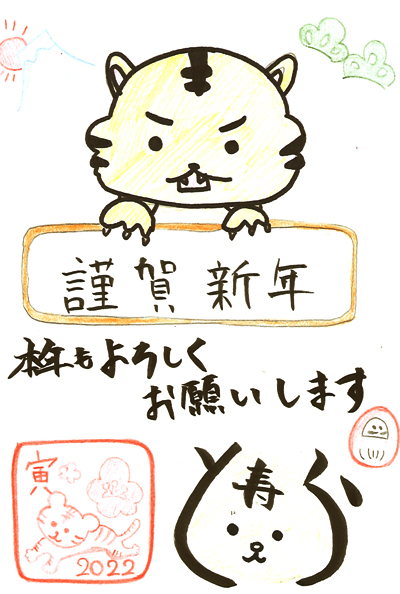 謹賀新年
本年もよろしく
お願いします
寅
2022
と寿ら